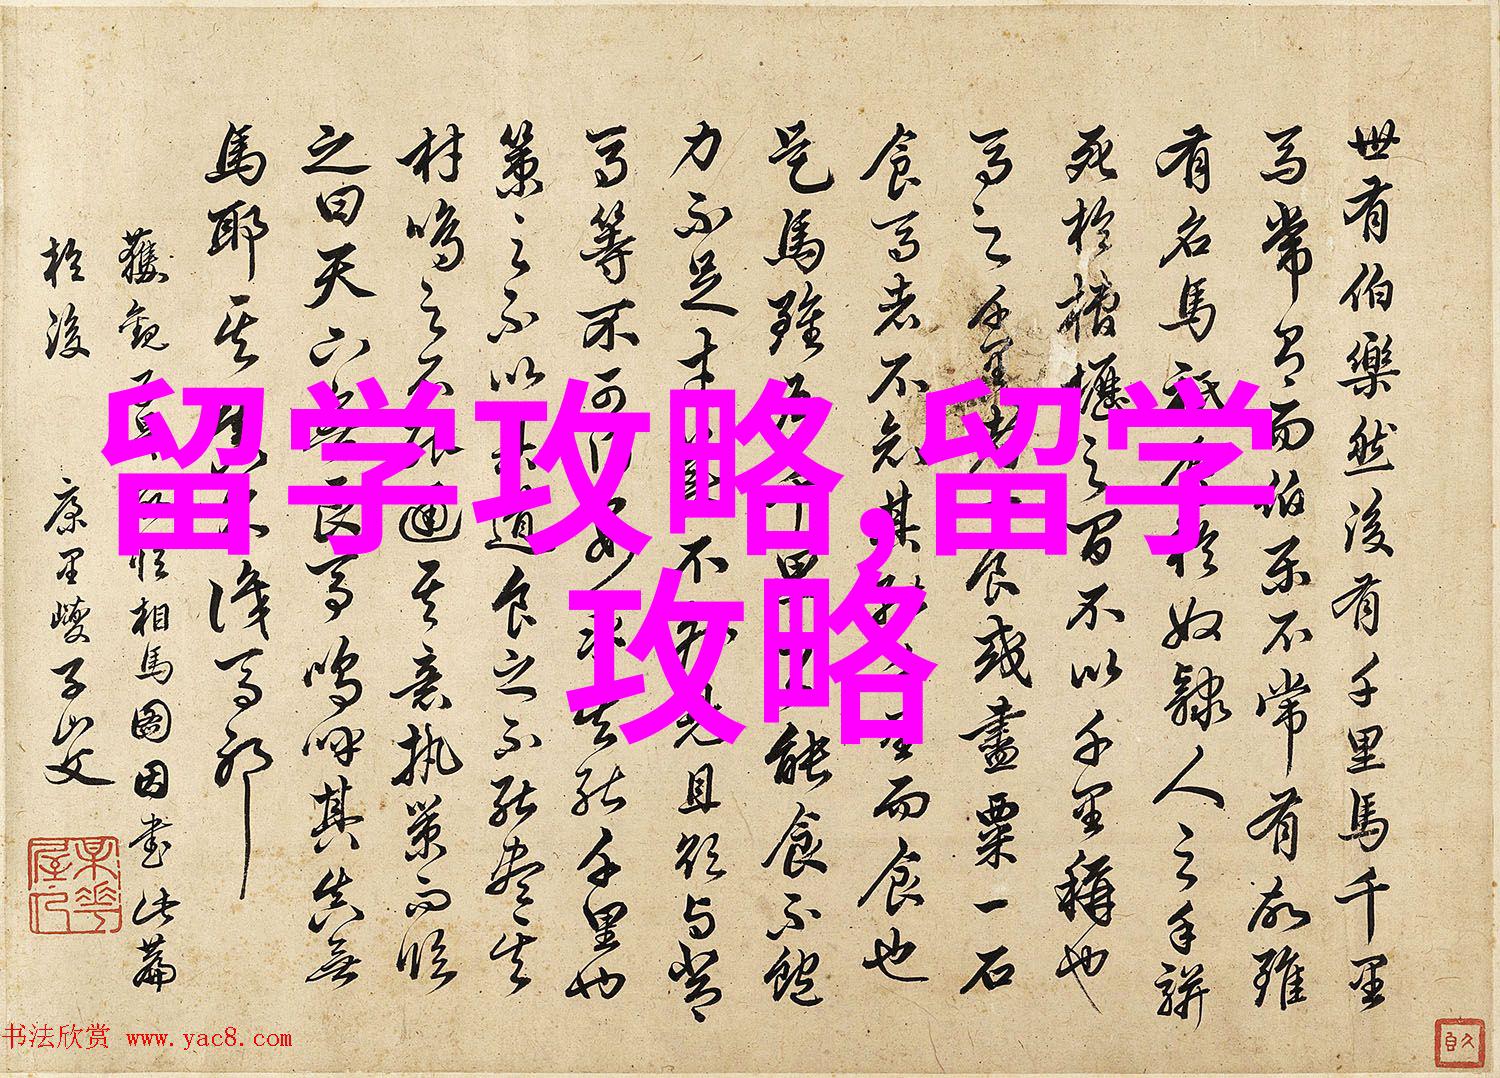 世有伯樂然後有千里馬千里
馬常有而伯樂不常有故雖
有名馬祗辱於奴隸人之手駢
死於槽櫪之間不以千里稱也
馬之千里者一食或盡粟一石
食馬者不知其能千里而食也
是馬雖有千里之能食不飽
力不足才美不外見且欲與常
馬等不可得安求其能千里也
策之不以其道食之不能盡其
材鳴之不能通其意執策而臨
之曰天下無良馬嗚呼其真無
馬耶其真不識馬邪
獲觀相馬圖因書此篇
於後 康里巙子山父
留学攻略,留学
攻略
书法欣赏 www.yac8.com